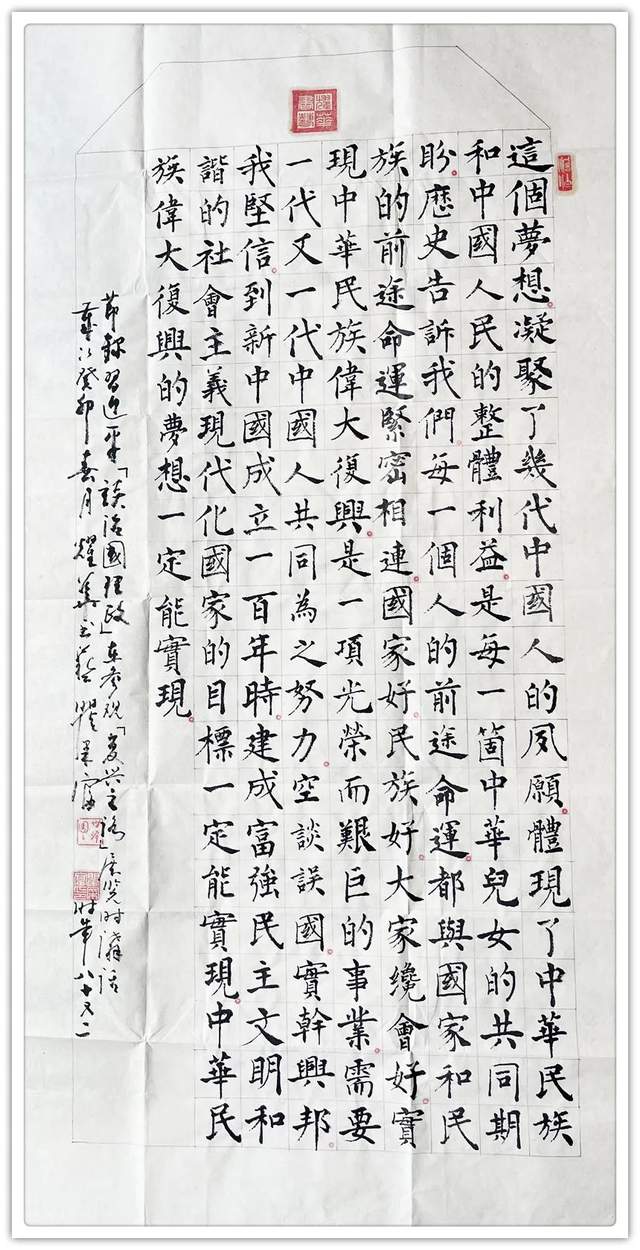 這個夢想凝聚了幾代中國人的夙願體現了中華民族
和中國人民的整體利益是每一箇中華兒女的共同期
盼歷史告訴我們每一個人的前途命運都與國家和民
族的前途命運緊密相連國家好民族好大家纔會好實
現中華民族偉大復興是一項光榮而艱巨的事業需要
一代又一代中國人共同為之努力空談誤國實幹興邦
我堅信到新中國成立一百年時建成富強民主文明和
諧的社會主義現代化國家的目標一定能實現中華民
族偉大復興的夢想一定能實現
節録習近平「談治國理政」在参观「复兴之路」展览时講話
癸卯春月耀華 时年八十又二